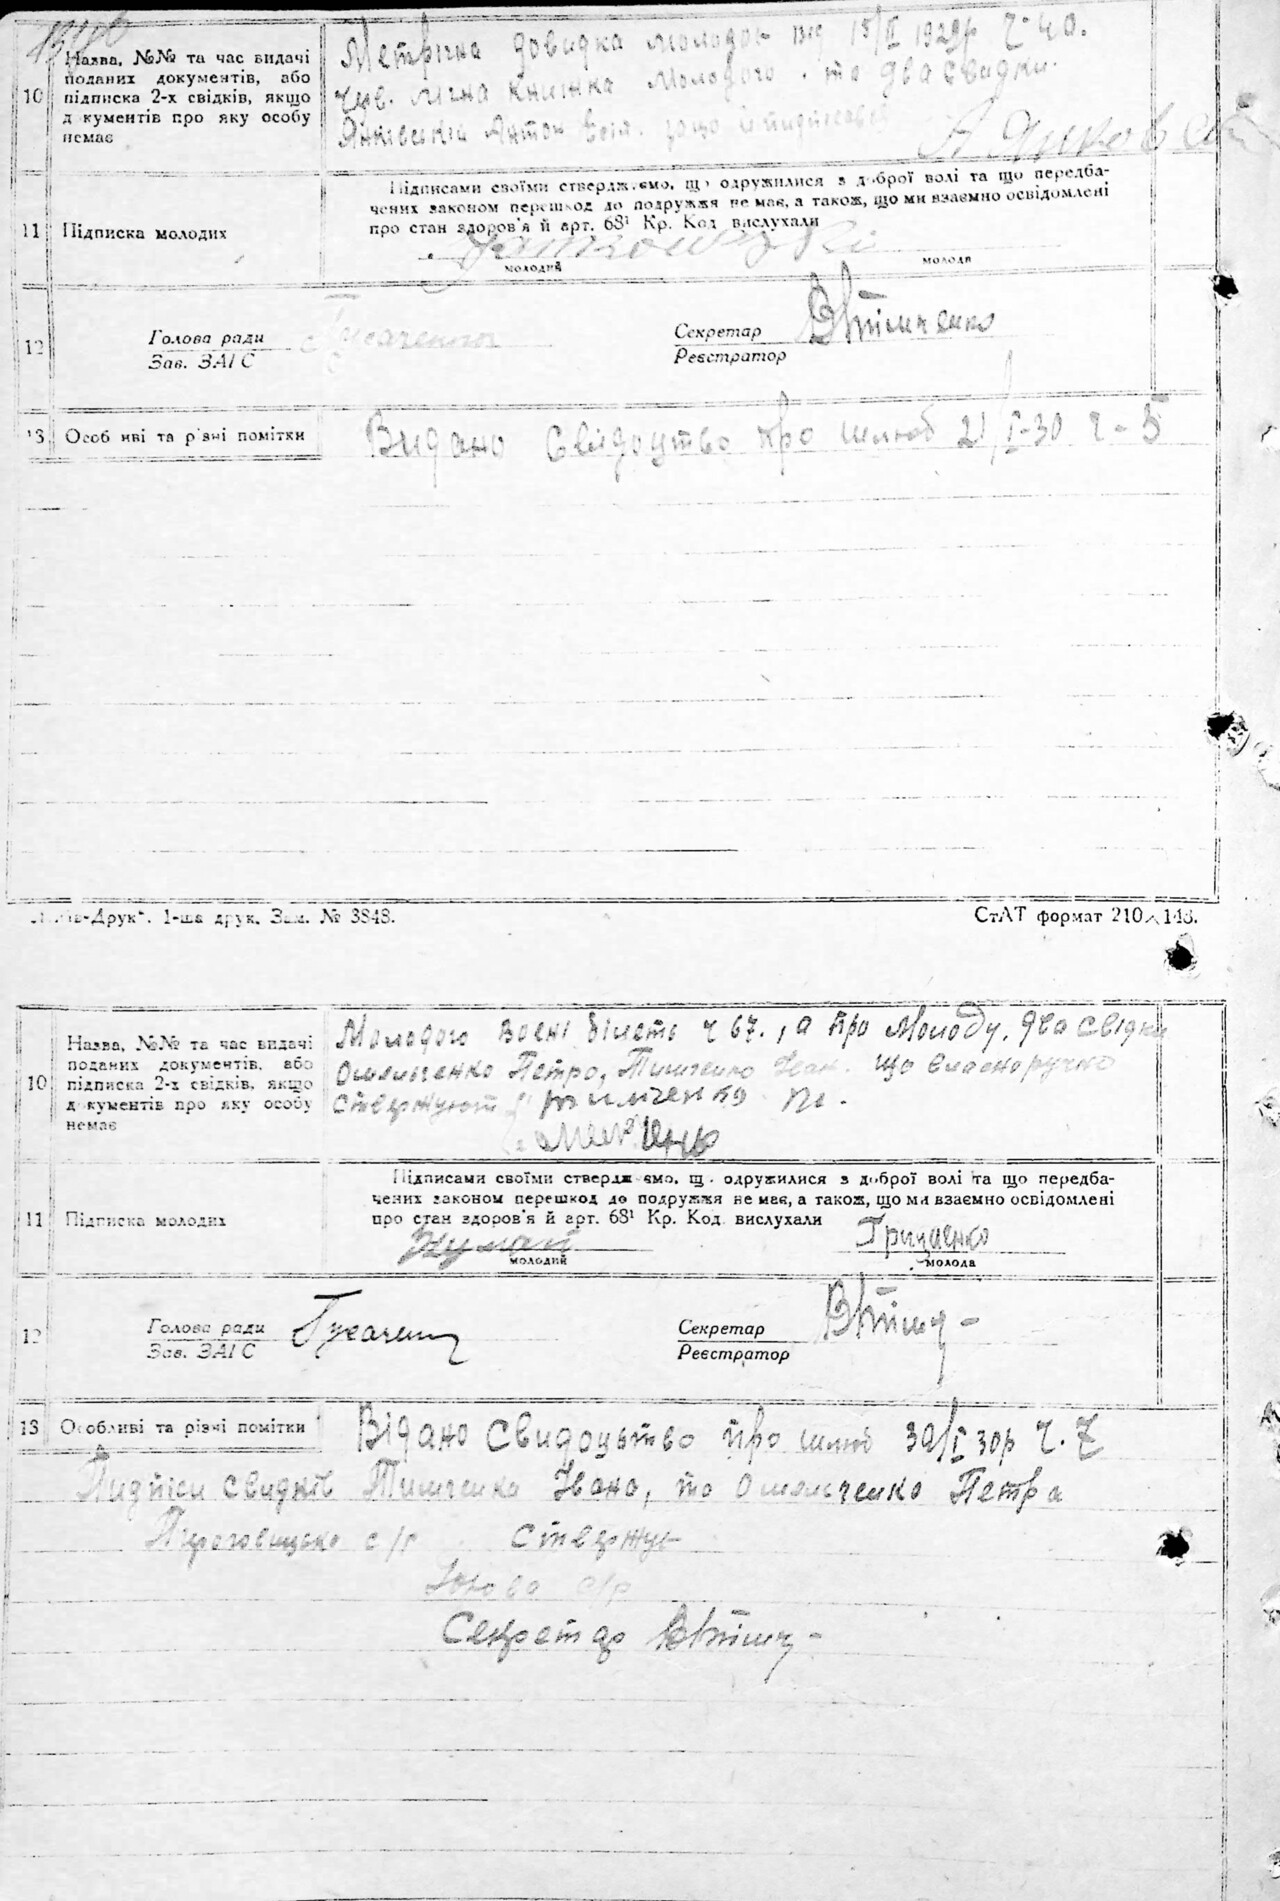 10
Назва, №№ та час видачі
поданих документів, або
підписка 2-х свідків, якщо
д кументів про яку особу
немає
Метрична довидка молодої від 15/II 1929р ч 40.
книжка Молодого. та два свидки.
Янківський Антон
11
Підписка молодих
Підписами своїми стверджуємо, що одружилися з доброї волі та що передба-
чених законом перешкод до подружжя не має, а також, що ми взаємно освідомлені
про стан здоров'я й арт. 68¹ Кр. Код вислухали
молодий
молода
12
Голова ради
Зав. ЗАГС
Гусаченко
Секретар
Реєстратор
ВТимченко
13
Особ иві та різні помітки
Видано Свідоцтво про шлюб 21/I-30 ч-5
-Друк". 1-ша друк. Зам. № 3848.
СтАТ формат 210×148.
10
Назва, №№ та час видачі
поданих документів, або
підписка 2-х свідків, якщо
д кументів про яку особу
немає
Молодого воєні білеть ч 67., а про Молоду. два свідки
Омельченко Петро, Тимченко Іван. що власноручно
Ствержуют Тимченко
11
Підписка молодих
Підписами своїми стверджуємо, що одружилися з доброї волі та що передба-
чених законом перешкод до подружжя не має, а також, що ми взаємно освідомлені
про стан здоров'я й арт. 68¹ Кр. Код. вислухали
молодий
Гриценко
молода
12
Голова ради
Зав. ЗАГС
Гусаченко
Секретар
Реєстратор
ВТимч-
13
Особливі та різні помітки
Відано Свидоцьтво про шлюб 30/I 30р Ч. 7
Пидписи свидків Тимченка Івана, та Омельченко Петра
с/р Ствержує
Голова с/р
Секретар ВТимч-